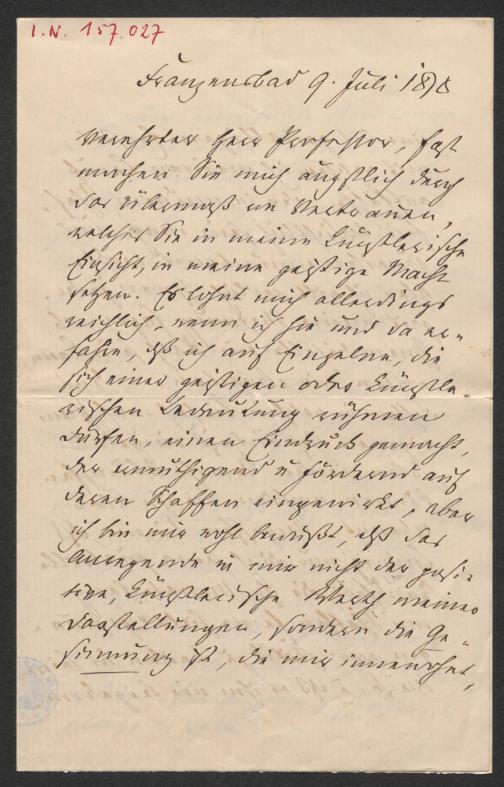 I.N. 157.027
Franzensbad 9. Juli 1878
Verehrter Herr Professor, fast
machen Sie mich ängstlich durch
das Übermaß an Vertrauen,
welches Sie in meine künstlerische
Einsicht, in meine geistige Macht
setzen. Es lohnt mich allerdings
reichlich, wenn ich hie und da er-
fahre, daß ich auf Einzelne, die
sich einer geistigen oder künstle-
rischen Bedeutung rühmen
dürfen, einen Eindruck gemacht,
der ermuthigend u fördernd auf
deren Schaffen eingewirkt, aber
ich bin mir wohl bewußt, daß das
Anregende in mir nicht der posi-
tive, künstlerische Werth meiner
Darstellungen, sondern die Ge-
sinnung ist, die mir innewohnt,